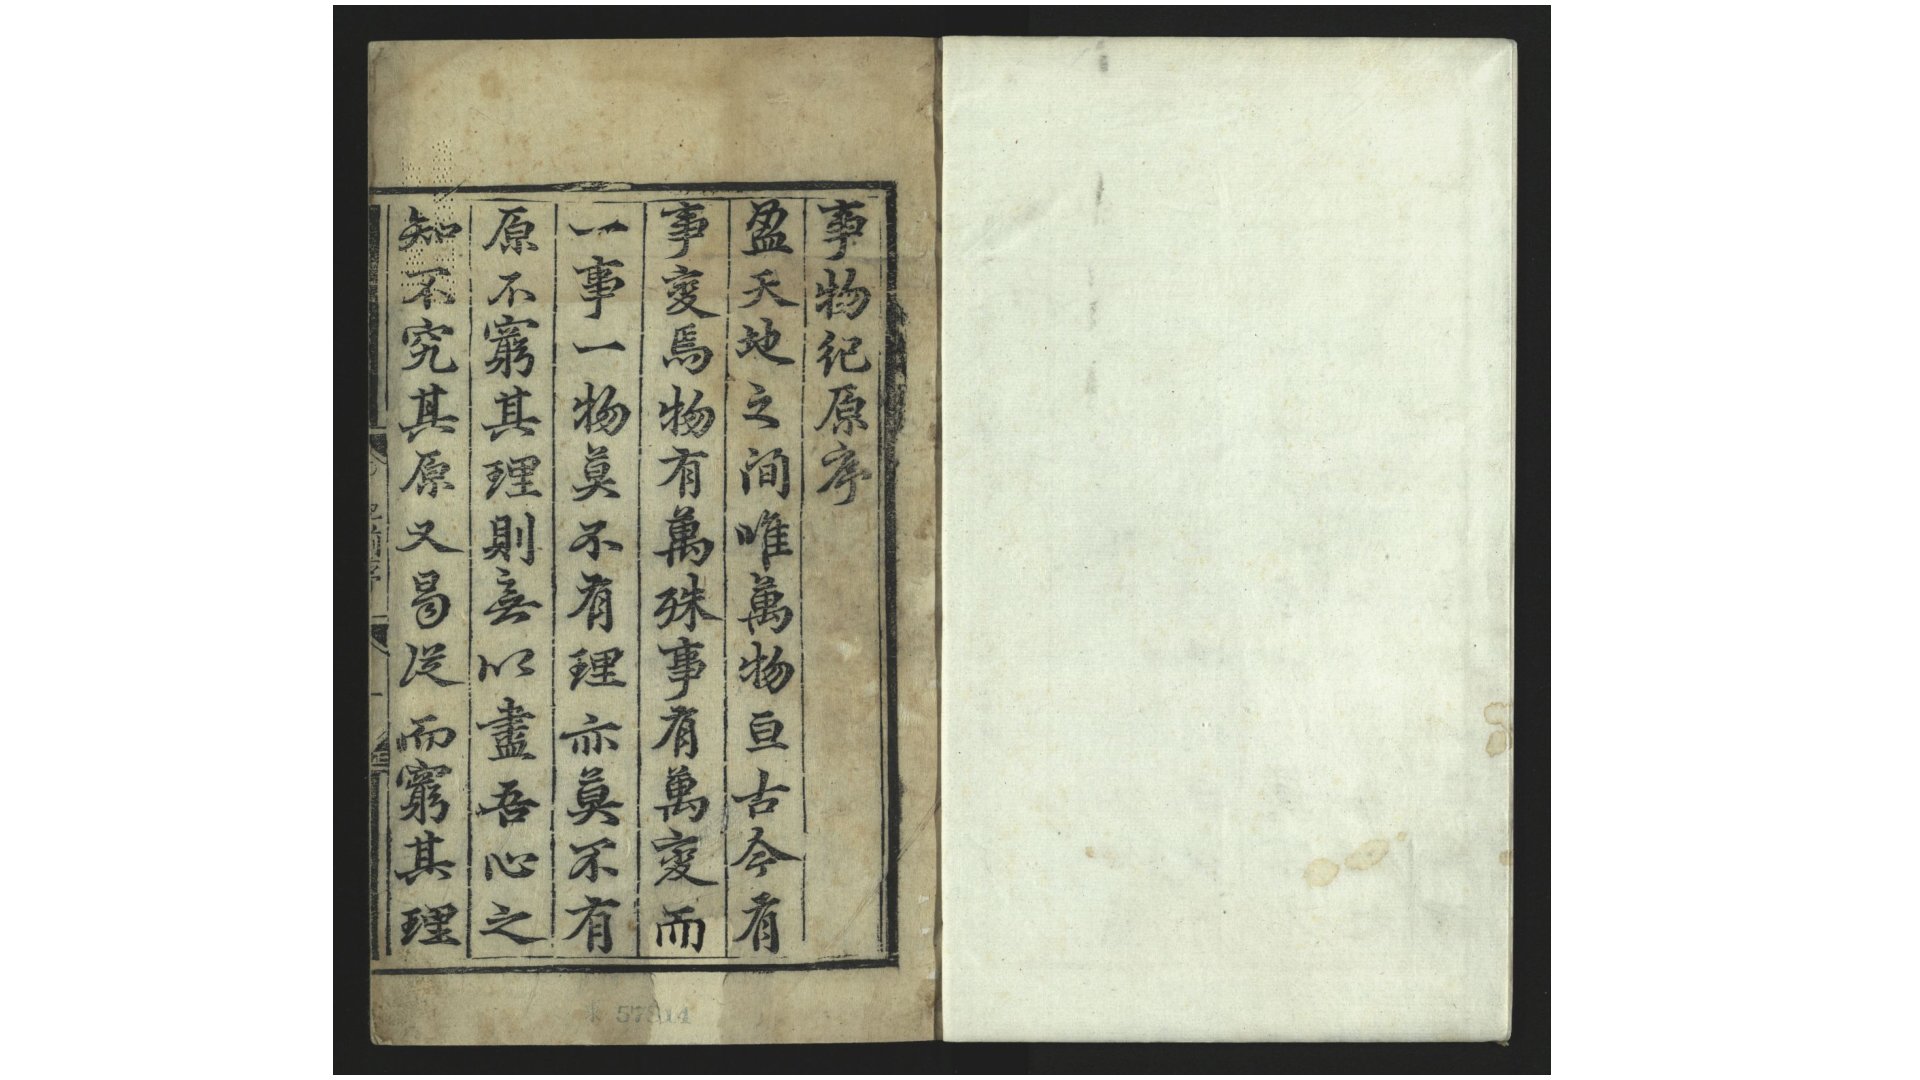 事物紀原序
盈天地之間唯萬物亘古今有
事變焉物有萬殊事有萬變而
一事一物莫不有理亦莫不有
原不窮其理則無以盡吾心之
知不究其原又曷從而窮其理